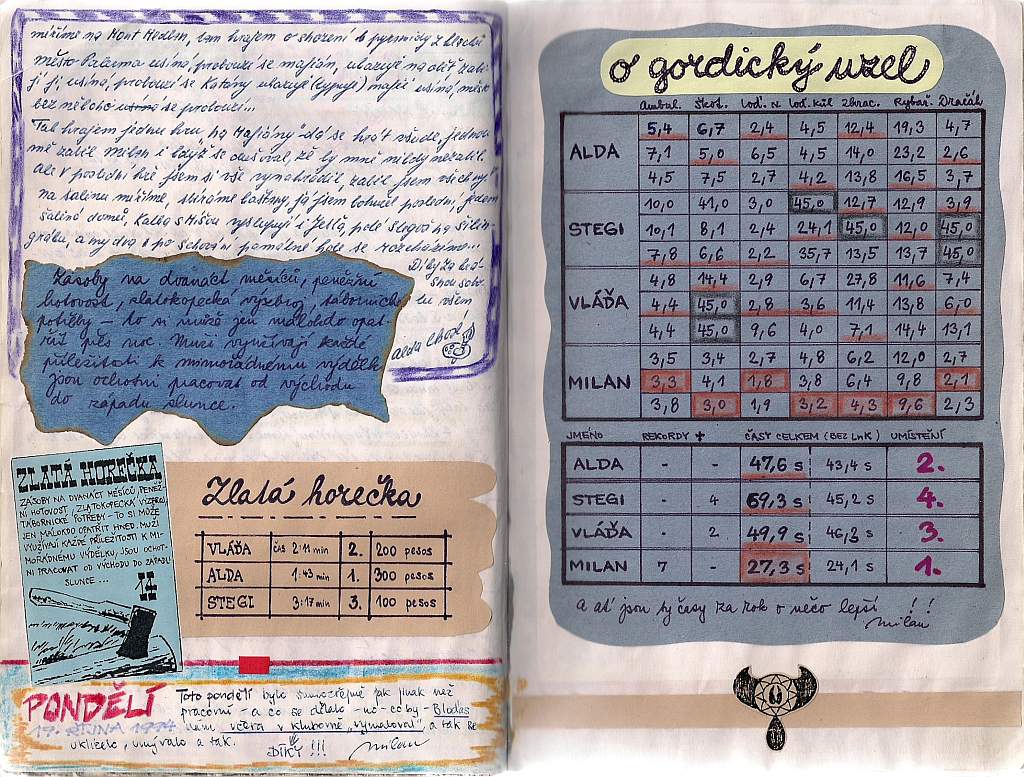 míříme na Mont Medem, tam hrajem o shození 6 pyramidy z blochů
město Palerma usíná, probouzí se mafián, ukazuje na oběť zabi-
jí ji, usíná, probouzí se Katany ukazuje (typuje) mafii usíná, město
bez někoho usíná se probouzí...
Tak hrajem jednu hru, na Mafiány" dá se hrát všude, jednou
mě zabil Milan i když se dušoval, že by mně nikdy nezabil
ale v poslední hře jsem si vše vynahradil, zabil jsem všechny.
na šalinu míříme, sbíráme kaštany, já jsem bohužel poslední, jedem
šalinó domů
a my dva i po schování památné hole se rozcházíme...
Díky za krá-
snou sobo-
tu všem
alda
Zásoby na dvanáct měsíců, peněžní
hotovost, zlatokopecká výzbroj, tábornické
potřeby – to si může jen málokdo opat-
řit přes noc. Muži využívají každé
příležitosti k mimořádnému výdělku
jsou ochotni pracovat od východu
do západu slunce.
ZLATÁ HOREČKA
ZÁSOBY NA DVANÁCT MĚSÍCŮ, PENĚŽ-
NÍ HOTOVOST, ZLATOKOPECKÁ VÝZBROJ,
TÁBORNICKÉ POTŘEBY – TO SI MŮŽE
JEN MÁLOKDO OPATŘIT HNED. MUŽI
VYUŽÍVAJÍ KAŽDÉ PŘÍLEŽITOSTI K MI-
MOŘÁDNÉMU VÝDĚLKU, JSOU OCHOT-
NI PRACOVAT OD VÝCHODU DO ZÁPADU
SLUNCE ...
Zlatá horečka
VLÁĎA čas 2:11 min 2. 200 pesos
ALDA 1:43 min 1. 300 pesos
STEGI 3:17 min 3. 100 pesos
PONDĚLÍ
19. ŘÍJNA 1994
Toto pondělí bylo samozřejmě jak jinak než
pracovní - a co se dělalo - no - co by - Bloďas
nám včera v klubovně "vymaloval", a tak se
uklízelo, umývalo a tak.
DÍKY !!! milan
o gordický uzel
Ambul. Škot. Loď. u. Loď. kůl Zkrac. Rybář. Dračák
ALDA
5,4 6,7 2,4 4,5 12,4 19,3 4,7
7,1 5,0 6,5 4,5 14,0 23,2 2,6
4,5 7,5 2,7 4,2 13,8 16,5 3,7
STEGI
10,0 41,0 3,0 45,0 12,7 12,9 3,9
10,1 8,1 2,4 24,1 45,0 12,0 45,0
7,8 6,6 2,2 35,7 13,5 13,7 45,0
VLÁĎA
4,8 14,4 2,9 6,7 27,8 11,6 7,4
4,4 45,0 2,8 3,6 11,4 13,8 6,0
4,4 45,0 9,6 4,0 7,1 14,4 13,1
MILAN
3,5 3,4 2,7 4,8 6,2 12,0 2,7
3,3 4,1 1,8 3,8 6,4 9,8 2,1
3,8 3,0 1,9 3,2 4,3 9,6 2,3
JMÉNO REKORDY + ČASY CELKEM (BEZ LNK) UMÍSTĚNÍ
ALDA - - 47,6 s 43,4 s 2.
STEGI - 4 69,3 s 45,2 s 4.
VLÁĎA - 2 49,9 s 46,3 s 3.
MILAN 7 - 27,3 s 24,1 s 1.
a ať jsou ty časy za rok o něco lepší !!
milan